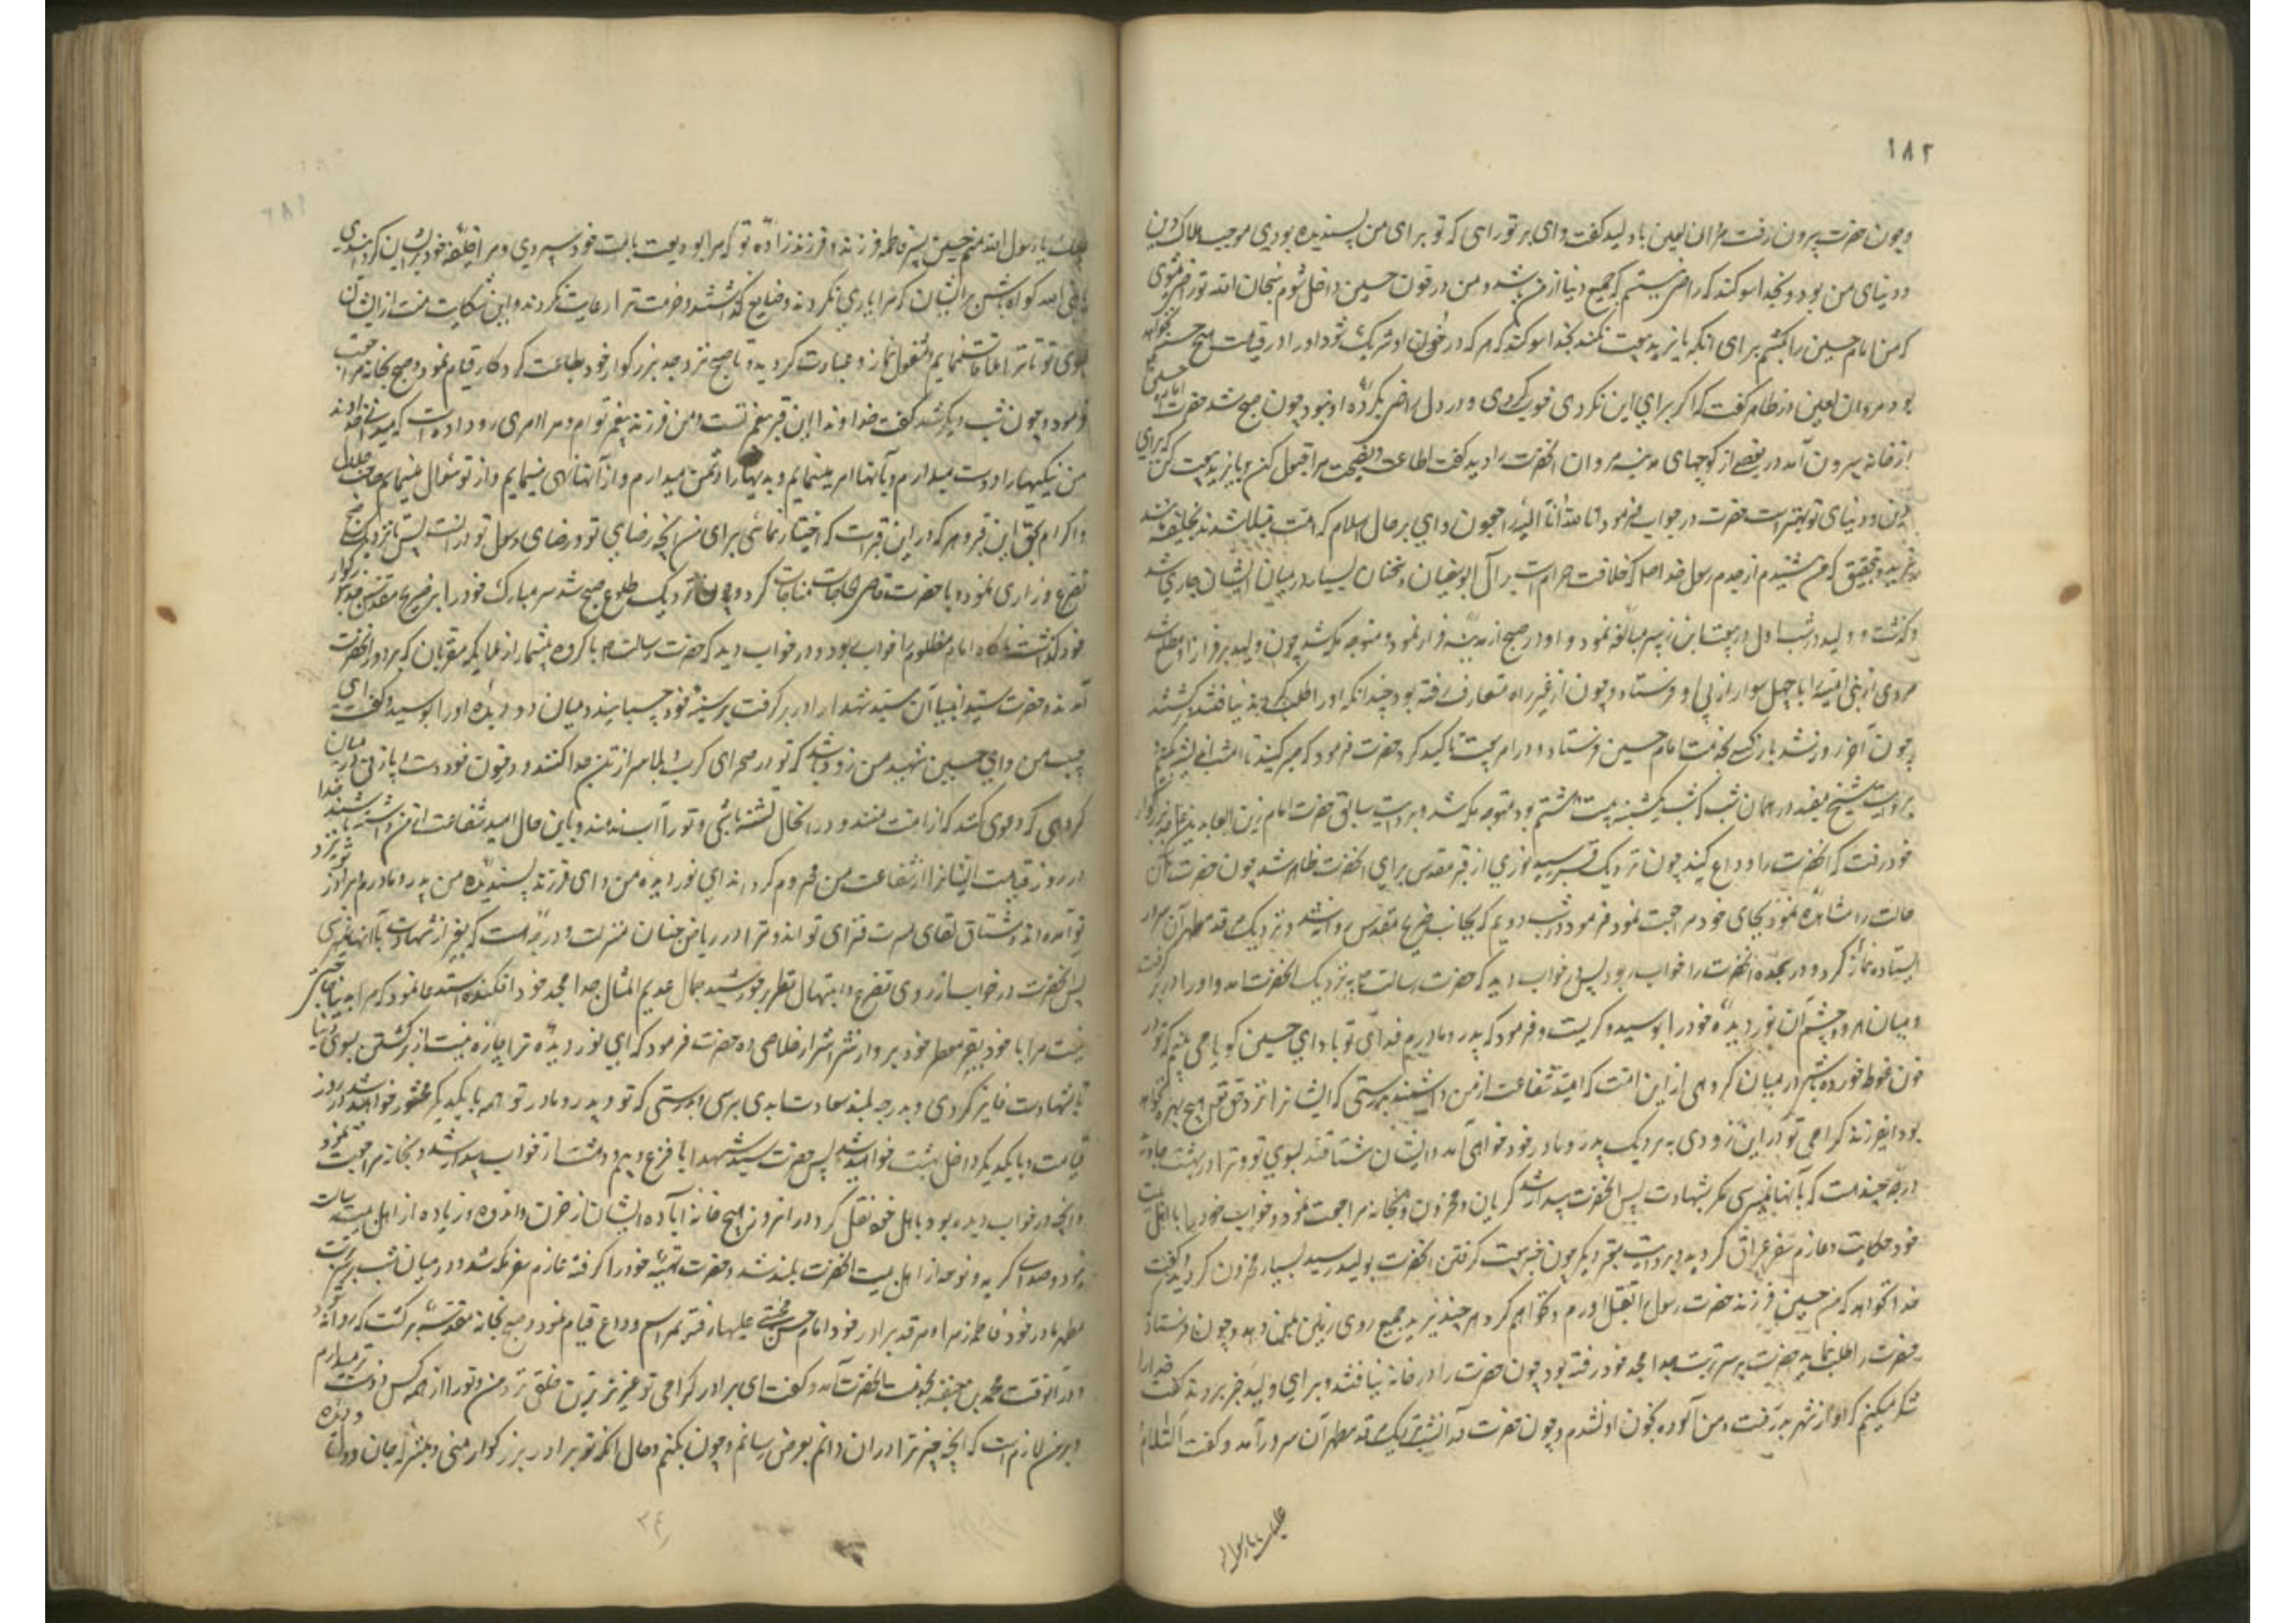 ١٨٢
وچون حضرت بیرون رفت مروان لعین با ولید کفت وای بر تو رایی که تو برای من پسندیده بودی موجب هلاک دین
و دنیای من بود و بخدا سوکند که راضی نیستم که جمیع دنیا از من باشد و من در خون حسین داخل شوم سبحان الله تو راضی میشوی
که من امام حسین را بکشم برای انکه با یزید بیعت نکند بخدا سوکند که هر که در خون او شریک شود او را در قیامت هیچ حسنه نخواهد
بود مروان لعین در ظاهر کفت که اکر برای این نکردی خوب کردی و در دل راضی بکردهٔ او نبود چون صبح شد حضرت امام حسین
از خانه بیرون آمد در بعضی از کوچهای مدینه مروان انحضرت را دید کفت اطاعت و نصیحت مرا قبول کن و با یزید بیعت کن که برای
دین و دنیای تو بهتر است حضرت در جواب فرمود انا لله و انا الیه راجعون وای بر حال اسلام که امت مبتلا شدند بخلیفه مثل
یزید و بتحقیق که من شنیدم از جدم رسول خدا که خلافت حرام است بر آل ابوسفیان و سخنان بسیار در میان ایشان جاری شد
و کذشت و ولید در شب اول در بیعت ابن زبیر مبالغه نمود و او در صبح از مدینه فرار نمود و متوجه مکه شد چون ولید بر فرار او مطلع شد
مردی از بنی امیه را با چهل سوار از پی او فرستاد و چون از غیر راه متعارف رفته بود چندانکه او را طلب کردند نیافتند و برکشتند
چون آخر روز شد باز کسی بخدمت امام حسین فرستاد و در امر بیعت تاکید کرد حضرت فرمود که صبر کنید تا امشب اندیشه کنیم
بروایت شیخ مفید در همان شب که شب یکشنبه بیست و هشتم بود متوجه مکه شد و بروایت سابق حضرت امام زین العابدین بنزد قبر جد بزرکوار
خود رفت که انحضرت را وداع کند چون نزدیک قبر رسید نوری از قبر مقدس برای انحضرت ظاهر شد چون حضرت آن
حالت را مشاهده نمود بجای خود مراجعت نمود فرمود در شب دویم که بجانب ضریح مقدس روانه شد و نزدیک مرقد مطهر آن سرور
ایستاده نماز کرد و در سجده انحضرت را خواب ربود پس در خواب دید که حضرت رسالت بنزدیک انحضرت آمد و او را در بر کرفت
و میان هر دو چشم آن نور دیدهٔ خود را بوسید و کریست و فرمود که پدر و مادرم فدای تو باد ای حسین کویا می بینم که تو در
خون غوطه خورده باشی در میان کروهی از این امت که امید شفاعت از من داشته باشند بدرستی که ایشانرا نزد حق تعالی هیچ بهره نخواهد
بود ای فرزند کرامی تو در این زودی بنزدیک پدر و مادر خود خواهی آمد و ایشان مشتاقند بسوی تو و ترا در بهشت
درجه چند است که بآنها نمیرسی مکر بشهادت پس انحضرت بیدار شد کریان و محزون و بخانه مراجعت نمود و خواب خود را با اهل بیت
خود حکایت و عازم سفر عراق کردید و بروایت معتبر دیکر چون خبر بیعت کرفتن انحضرت بولید رسید بسیار محزون کردید و کفت
خدا نخواهد که من حسین فرزند حضرت رسول را بقتل آورم و نخواهم کرد هر چند یزید جمیع روی زمین بمن دهد و چون فرستاد
حضرت را طلب نماید حضرت بر سر تربت جد امجد خود رفته بود چون حضرت را در خانه نیافتند و برای ولید خبر بردند کفت خدا را
شکر میکنم که او از شهر بدر رفت و من آلوده بخون او نشدم و چون حضرت در آن شب نزدیک مرقد مطهر آن سرور آمد و کفت السلام
علیک یا رسول
علیک یا رسول الله منم حسین پسر فاطمه فرزند و فرزند زادهٔ تو که مرا بودیعت بامت خود سپردی و مرا خلیفهٔ خود بر ایشان کردانیدی
یا نبی الله کواه باش بر ایشان که مرا یاری نکردند و ضایع کذاشتند و حرمت ترا رعایت نکردند و این شکایت منست از ایشان
بسوی تو تا ترا ملاقات نمایم و مشغول نماز و عبادت کردید و تا صبح نزد جد بزرکوار خود بطاعت کردکار قیام نمود و صبح بخانه مراجعت
فرمود و چون شب دیکر شد کفت خداوندا این قبر پیغمبر تست و من فرزند پیغمبر توام و مرا امری رو داده است که میدانی خداوندا
من نیکیها را دوست میدارم و بآنها امر مینمایم و بدیها را دشمن میدارم و از آنها نهی مینمایم و از تو سؤال مینمایم یا صاحب جلال
و اکرام بحق این قبر و هر که در این قبر است که اختیار نمائی برای من انچه رضای تو و رضای رسول تو در انست پس تا نزدیک صبح
تضرع و زاری نمود و با حضرت قاضی الحاجات مناجات کرد و چون نزدیک طلوع صبح شد سر مبارک خود را بر ضریح مقدس جد بزرکوار
خود کذاشت ناکاه امام مظلوم را خواب ربود و در خواب دید که حضرت رسالت با کروه بیشمار از ملایکه مقربان که بر دور انحضرت
آمدند و حضرت سید انبیا آن سید شهدا را در بر کرفت بر سینهٔ خود چسبانید و میان دو دیدهٔ او را بوسید و کفت ای
حبیب من و ای حسین شهید من زود باشد که تو در صحرای کرب و بلا سر از تن جدا کنند و در خون خود دست و پا زنی در میان
کروهی که دعوی کنند که از امت منند و در انحال تشنه باشی و تو را آب ندهند و باین حال امید شفاعت از من داشته باشند خدا
در روز قیامت ایشانرا از شفاعت من محروم کرداند ای نور دیدهٔ من و ای فرزند پسندیده من پدر و مادر و برادر تو نزد
تو آمده اند و مشتاق لقای مسرت فزای تو اند و ترا در ریاض جنان منزلت و درجه هست که بغیر از شهادت بآنها نمیرسی
پس انحضرت در خواب از روی تضرع و ابتهال نظر بر خورشید جمال عدیم المثال جد امجد خود افکنده استدعا نمود که مرا بدنیا حاجتی
نیست مرا با خود بقبر معطر خود ببر و از شر اشرار خلاصی ده حضرت فرمود که ای نور دیده ترا چاره نیست از برکشتن بسوی دنیا
تا بشهادت فایز کردی و بدرجه بلند سعادت ابدی برسی بدرستی که تو و پدر و مادر تو همه با یکدیکر محشور خواهید شد در روز
قیامت و با یکدیکر داخل بهشت خواهید شد پس حضرت سید شهدا با فزع و بیم و دهشت از خواب بیدار شد و بخانه مراجعت نمود
و انچه در خواب دیده بود با اهل خود نقل کرد و در انروز هیچ خانه آباده ایشان از حزن و اندوه زیاده از اهل بیت رسالت
نبود و صدای کریه و نوحه از اهل بیت انحضرت بلند شد و حضرت تهیه خود را کرفته عازم سفر مکه شد و در میان شب بر سر تربت
مطهر مادر خود فاطمه زهرا و مرقد برادر خود امام حسن مجتبی علیهما رفته بمراسم وداع قیام نمود و صبح بخانه مقدسه برکشت که روانه شود
و در آنوقت محمد بن حنفیه بخدمت انحضرت آمد و کفت ای برادر کرامی تو عزیزترین خلقی نزد من و تو را از همه کس دوست تر میدارم
و بر من لازم است که انچه خیر ترا در ان دانم بعرض رسانم و چون نکنم و حال انکه تو برادر بزرکوار منی و بمنزله جان و دل و دیده